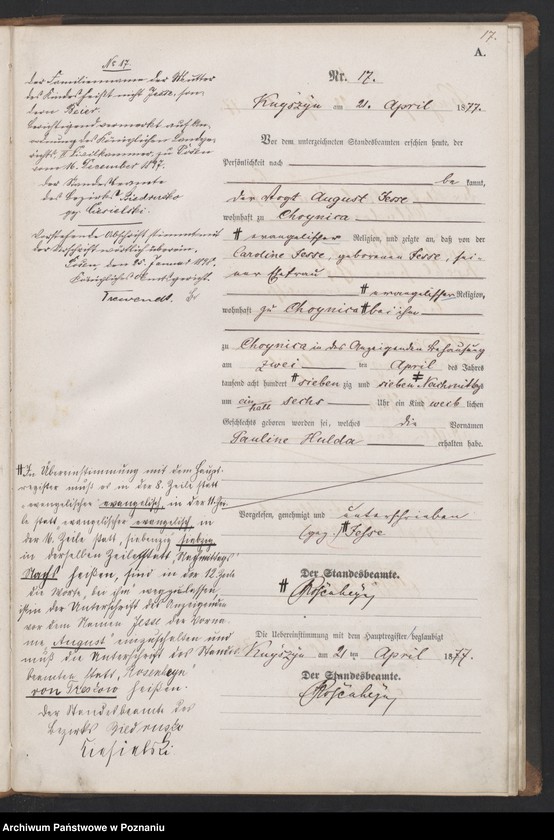 17.
A.
No 17
der Familienname der Mutter
des Kindes heißt nicht Jesse, son-
dern Beier.
Berichtigend vermerkt auf An-
ordnung des Königlichen Landge-
richts, II Civilkammer, zu Posen
vom 16. Dezember 1897.
der Standesbeamte
des Bezirks Biedrusko
Vorstehende Abschrift stimmt mit
der Urschrift wörtlich überein.
Posen, den 25. Januar
Königliches Amtsgericht.
Nr. 17.
am 21. April 1877.
Vor dem unterzeichneten Standesbeamten erschien heute, der
Persönlichkeit nach
be kannt,
der Vogt August Jesse
wohnhaft zu Choynica
evangelischer Religion, und zeigte an, daß von der
Caroline Jesse, geborenen Jesse, sei-
ner Ehefrau
evangelischer Religion,
wohnhaft zu Choynica bei ihm
zu Choynica in des Anzeigenden Behausung
am zwei ten April des Jahres
tausend acht hundert sieben zig und sieben Nachmittags
um ein halb sechs Uhr ein Kind weib lichen
Geschlechts geboren worden sei, welches die Vornamen
Pauline Hulda erhalten habe.
Vorgelesen, genehmigt und unterschrieben
(gez.) Jesse
Der Standesbeamte.
Die Uebereinstimmung mit dem Hauptregister beglaubigt
am 21 ten April 1877.
Der Standesbeamte.
In Übereinstimmung mit dem Haupt-
register muß es in der 8. Zeile statt
evangelischer evangelisch in der 11. Zei-
le statt evangelischer evangelisch, in
der 16. Zeile statt siebenzig siebzig
in derselben Zeile statt Nachmittags
heißen, sind in der 12. Zeile
die Worte, bei ihm wegzulassen,
ist in der Unterschrift des Anzeigenden
vor dem Namen Jesse der Vorna-
me August einzuschalten und
muß die Unterschrift des Standes
beamten statt Rosenheyn
von Treskow heißen.
Der Standesbeamte des
Bezirks Biedrusko
Archiwum Państwowe w Poznaniu